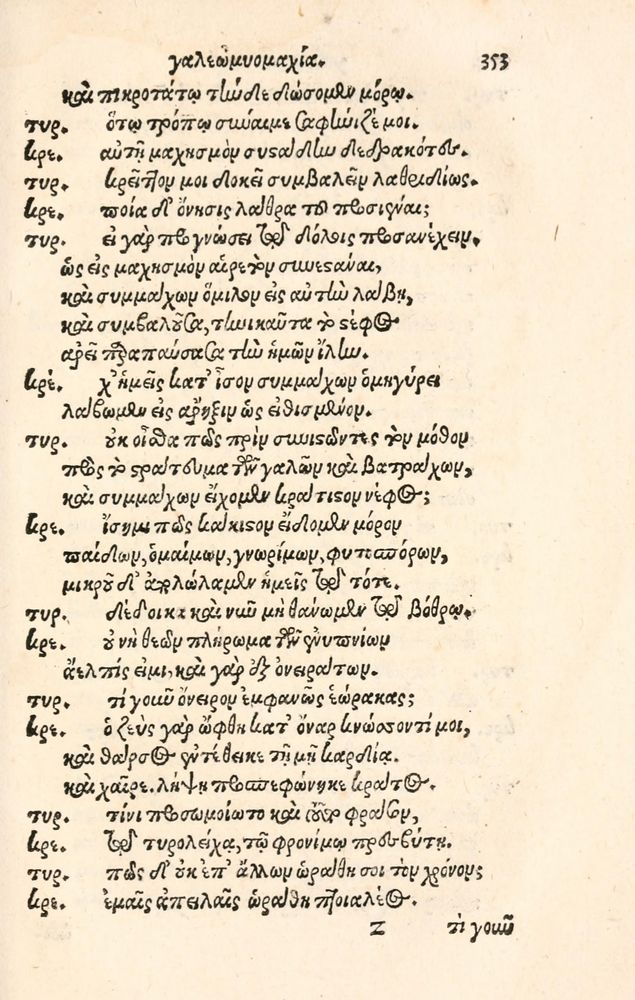 γαλεωμυομαχία. 353
καὶ πικροτάτῳ τήνδε δώσομεν μόρῳ.
τυρ. ὅτῳ τρόπῳ σύναιμε σαφήνιζέ μοι.
κρε. αὐτῇ μαχησμὸν συστάδην δεδρακότες.
τυρ. κρεῖττον μοι δοκεῖ συμβαλεῖν λαθριδίως.
κρε. ποία δ' ὄνησις λάθρα του προσιέναι;
τυρ. εἰ γὰρ προγνώσει τοῦ δόλοις προσανέχειν,
ὡς εἰς μαχησμὸν αἱρετὸν συνεστάναι,
καὶ συμμάχων ὅμιλον εἰς αὐτὴν λάβῃ,
καὶ συμβαλοῦσα, τηνικαῦτα τὸ στέφος
ἀρεῖ παραπαύσασα τὴν ἡμῶν ἴλην.
κρέ. χ' ἡμεῖς κατ' ἶσον συμμάχων ὁμηγύρει
λάβωμεν εἰς ἄρηξιν ὡς εἰθισμένον.
τυρ. οὐκ οἶσθα πῶς πρὶν συνιστῶντες τὸν μόθον
πρὸς τὸ στράτευμα τῶν γαλῶν καὶ βατράχων,
καὶ συμμάχων εἴχομεν κράτιστον νέφος;
κρε. ἴσημι πῶς κάκιστον εἴδομεν μόρον
παίδων, ὁμαίμων, γνωρίμων, φυτοσπόρων,
μικροῦ δ' ἀπολώλαμεν ἡμεῖς τοῦ τότε.
τυρ. δέδοικα καὶ νῦν μὴ θάνωμεν τοῦ βόθρῳ.
κρε. οὐ νὴ θεῶν πλήρωμα τῶν ἐνυπνίων
ἄελπίς εἰμι, καὶ γὰρ ἐξ ὀνειράτων.
τυρ. τί γοῦν ὄνειρον ἐμφανῶς ἑώρακας;
κρε. ὁ ζεὺς γὰρ ὤφθη κατ' ὄναρ κνώσσοντί μοι,
καὶ θάρσος ἐντέθεικε τῇ μῇ καρδίᾳ.
καὶ χαῖρε. λήψῃ προσπεφώνηκε κράτος.
τυρ. τίνι προσωμοίωτο καὶ τοῦτο φράσον,
κρε. τοῦ τυρολείχᾳ, τῷ φρονίμῳ πρεσβύτῃ.
τυρ. πῶς δ' οὐκ ἐπ' ἄλλων ὡράθη σοι τὸν χρόνον;
κρε. ἐμαῖς ἀπειλαῖς ὡράθη πτοιαλέος.
Z τὶ γοῦν